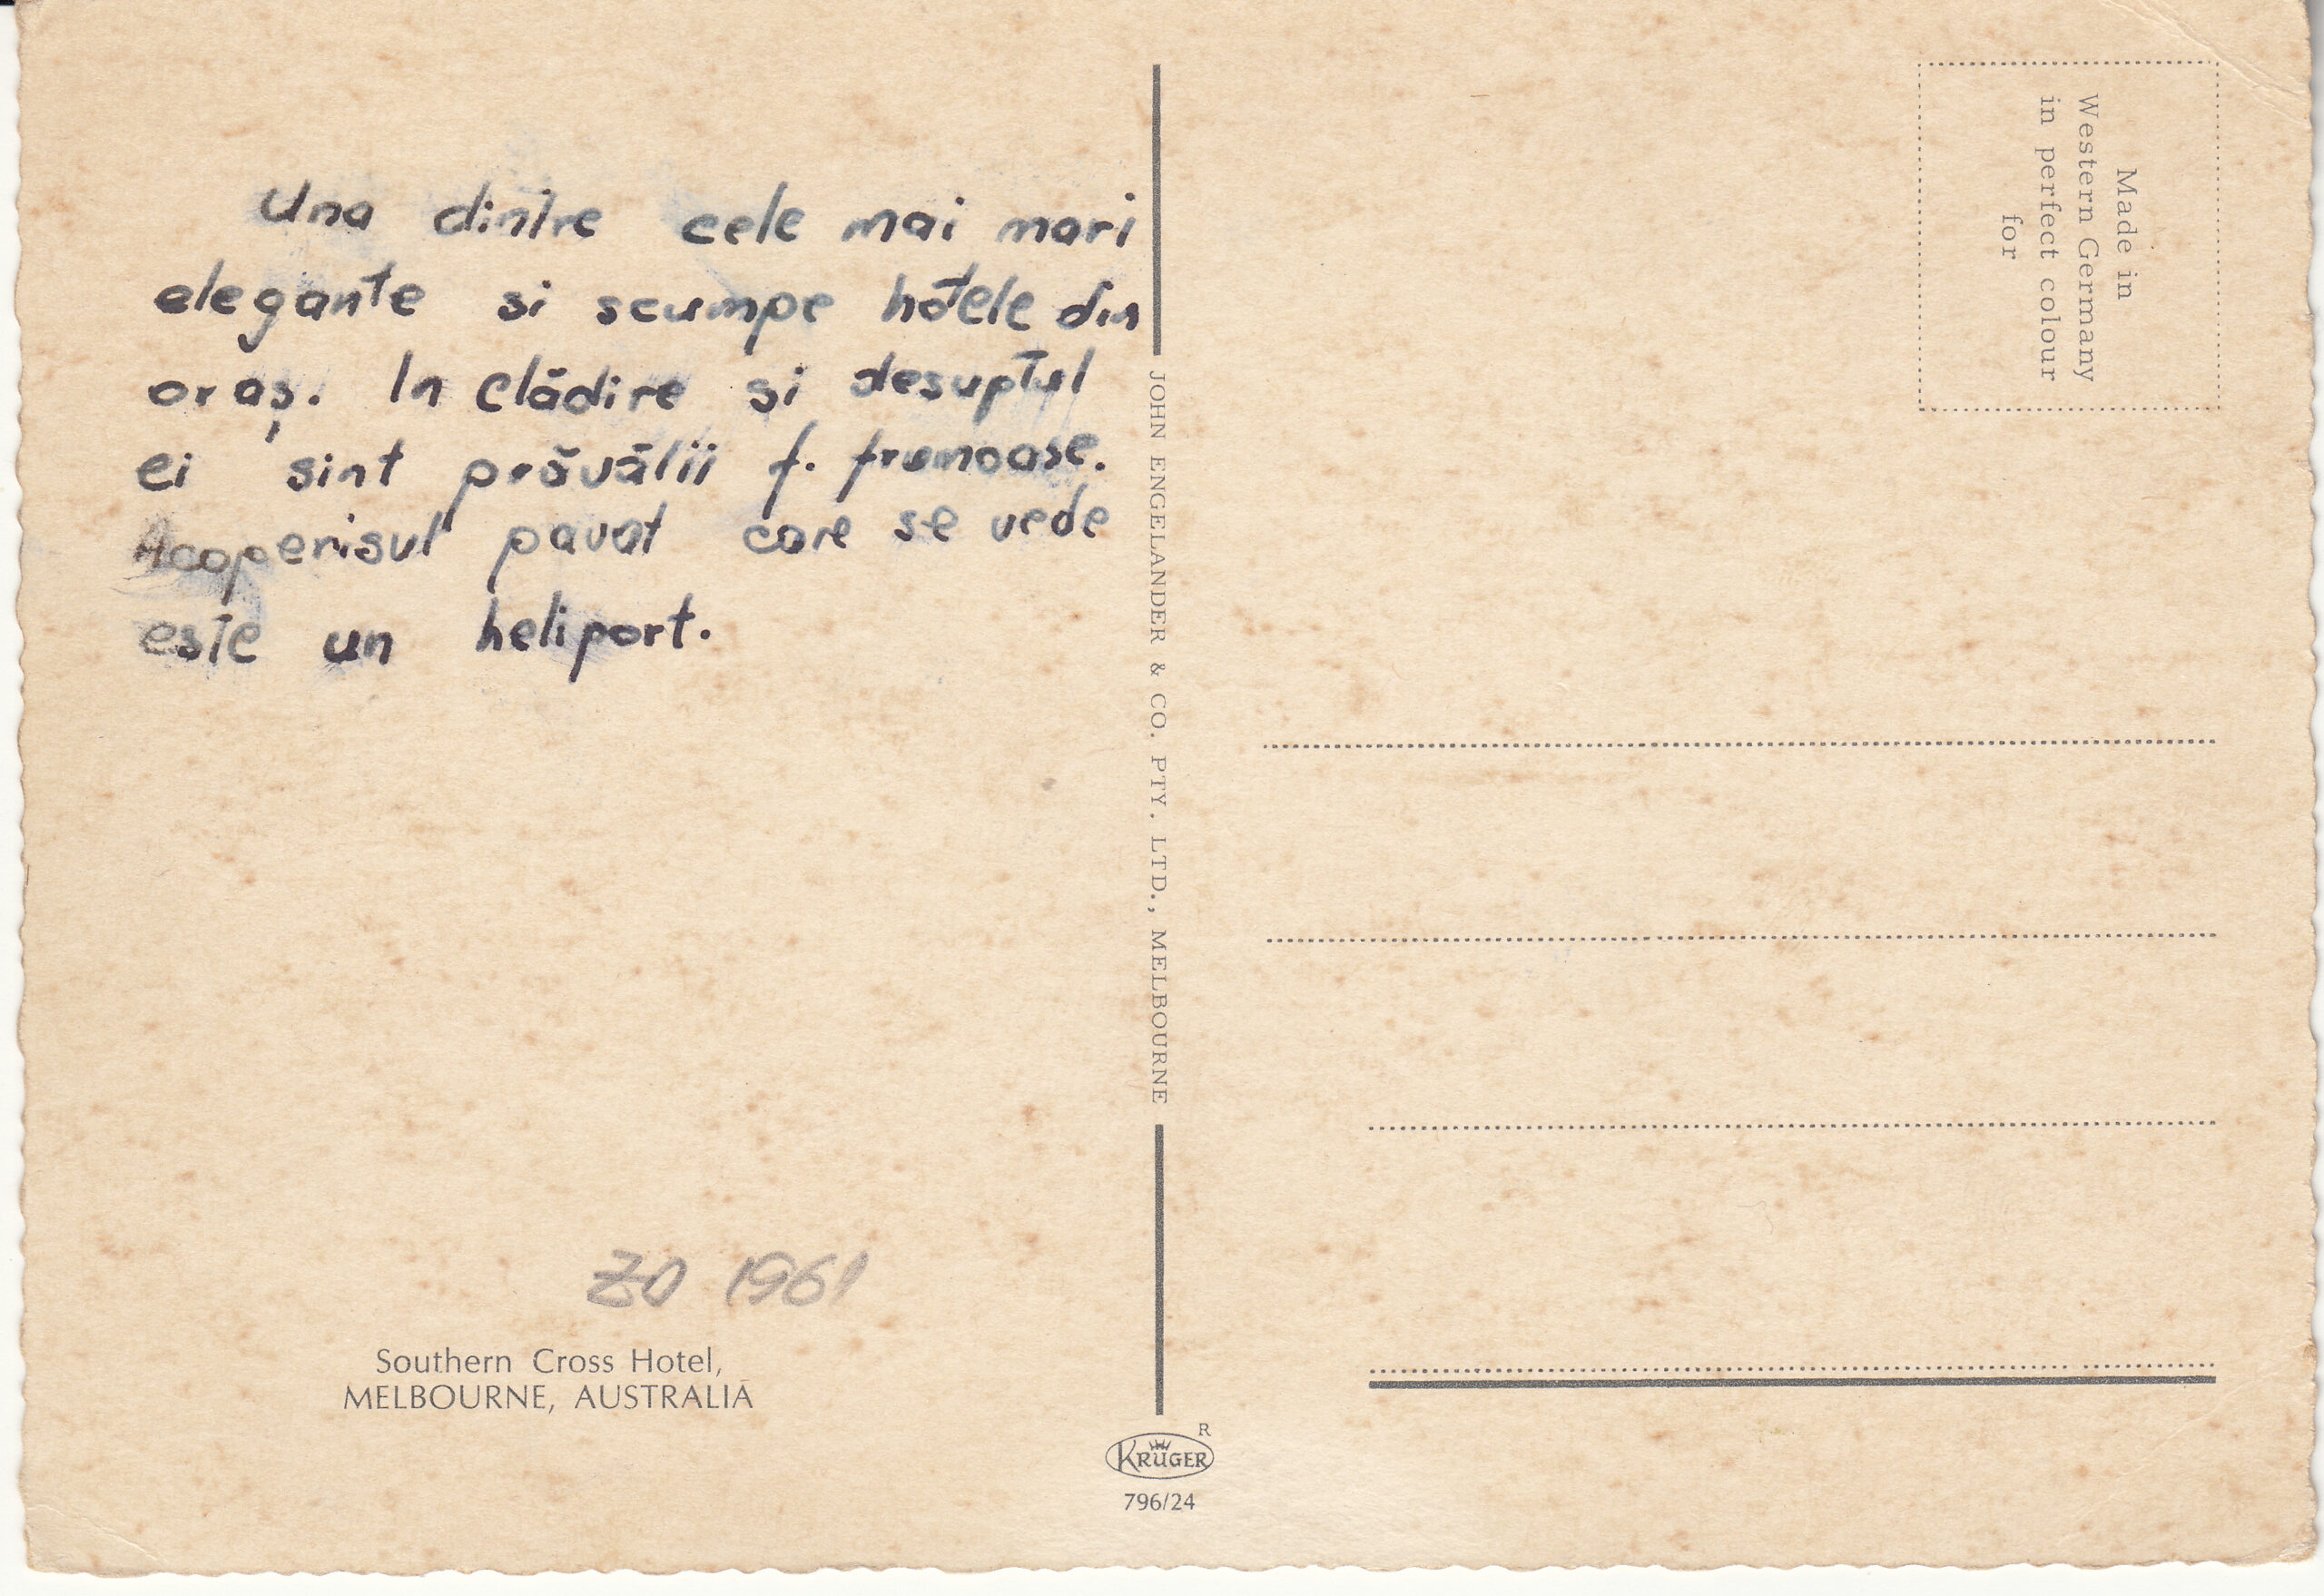 Una dintre cele mai mari
elegante si scumpe hotele din
oraș. In clădire si desuptul
ei sint prăvălii f. frumoase.
Acoperisul pavat care se vede
este un heliport.
ZO 1961
Southern Cross Hotel,
MELBOURNE, AUSTRALIA
JOHN ENGELANDER & CO. PTY. LTD., MELBOURNE
KRÜGER R
796/24
Made in
Western Germany
in perfect colour
for